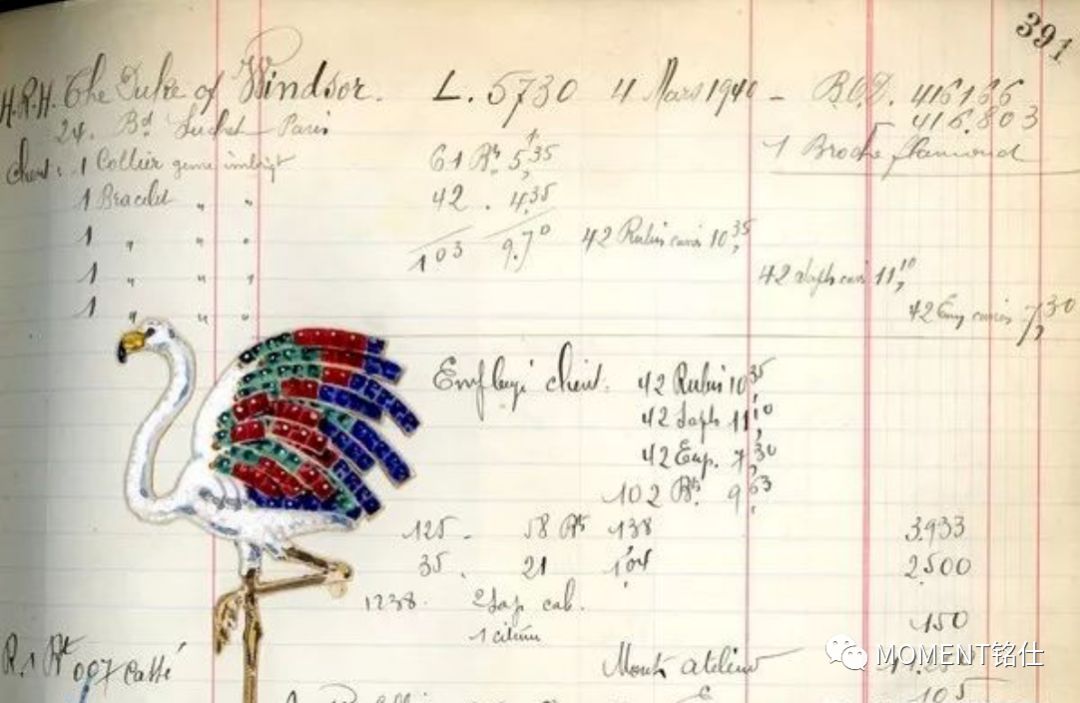 391
H.R.H. The Duke of Windsor. L. 5730 4 Mars 1940 - 416136
416.803
24. Bd Suchet Paris
1 Broche flamand
client : 1 Collier genre 61 Bts 5,35
1 Bracelet " " 42 . 4,35
1 " " " 103 9,70 42 Rubis carrés 10,35
1 " " " 42 Saph carrés 11,10
1 " " " 42 Em carrés 7,30
Employé client. 42 Rubis 10,35
42 Saph 11,10
42 Em. 7,30
102 Bts 9,63
125 - 58 Bts 138 3.933
35 . 21 1,04 2.500
1238. 2 Sap cab.
150
1 citrin
R. 1 Bt 007 Cassé
Monts atelier
MOMENT铭仕
105